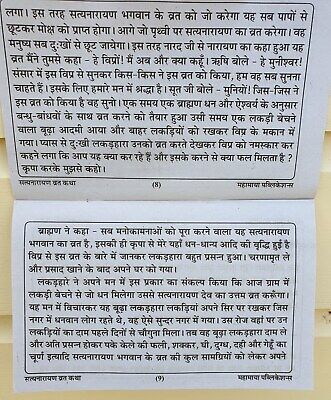 लगा। इस तरह सत्यनारायण भगवान के व्रत को जो करेगा यह सब पापों से
छूटकर मोक्ष को प्राप्त होगा। आगे जो पृथ्वी पर सत्यनारायण का व्रत करेगा। वह
मनुष्य सब दुःखों से छूट जायेगा। इस तरह नारद जी से नारायण का कहा हुआ यह
व्रत मैंने तुमसे कहा - हे विप्रो! मैं अब और क्या कहूँ। ऋषि बोले - हे मुनीश्वर!
संसार में इस विप्र से सुनकर किस-किस ने इस व्रत को किया, हम वह सब सुनना
चाहते हैं। इसके लिए हमारे मन में श्रद्धा है। सूत जी बोले - मुनियों! जिस-जिस ने
इस व्रत को किया है वह सुनो। एक समय एक ब्राह्मण धन और ऐश्वर्य के अनुसार
बन्धु-बांधवों के साथ व्रत करने को तैयार हुआ उसी समय एक लकड़ी बेचने
वाला बूढ़ा आदमी आया और बाहर लकड़ियों को रखकर विप्र के मकान में
गया। प्यास से दुःखी लकड़हारा उनको व्रत करते देखकर विप्र को नमस्कार कर
कहने लगा कि आप यह क्या कर रहे हैं और इसके करने से क्या फल मिलता है ?
कृपा करके मुझसे कहो।
सत्यनारायण व्रत कथा (8) महामाया पब्लिकेशन्स
ब्राह्मण ने कहा - सब मनोकामनाओं को पूरा करने वाला यह सत्यनारायण
भगवान का व्रत है, इसकी ही कृपा से मेरे यहाँ धन-धान्य आदि की वृद्धि हुई है
विप्र से इस व्रत के बारे में जानकर लकड़हारा बहुत प्रसन्न हुआ। चरणामृत ले
और प्रसाद खाने के बाद अपने घर को गया।
लकड़हारे ने अपने मन में इस प्रकार का संकल्प किया कि आज ग्राम में
लकड़ी बेचने से जो धन मिलेगा उससे सत्यनारायण देव का उत्तम व्रत करूंगा।
यह मन में विचारकर यह बूढ़ा लकड़हारा लकड़ियां अपने सिर पर रखकर जिस
नगर में धनवान लोग रहते थे, वह ऐसे सुन्दर नगर में गया। उस रोज वहां पर उन
लकड़ियों का दाम पहले दिनों से चौगुना मिला। तब वह बूढ़ा लकड़हारा दाम ले
और अति प्रसन्न होकर पके केले की फली, शक्कर, घी, दुग्ध, दही और गेहूँ का
चूर्ण इत्यादि सत्यनारायण भगवान के व्रत की कुल सामग्रियों को लेकर अपने
सत्यनारायण व्रत कथा (9) महामाया पब्लिकेशन्स